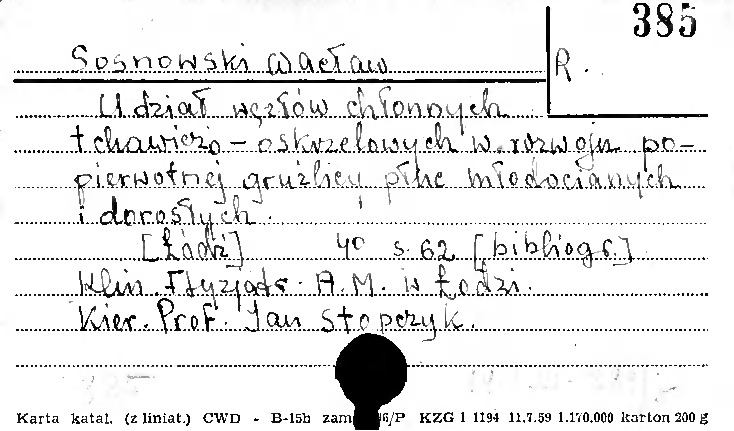 385
Sosnowski Wacław
R.
Udział węzłów chłonnych
tchawiczo-oskrzelowych w rozwoju po-
pierwotnej gruźlicy płuc młodocianych
i dorosłych.
[Łódź] 4° s. 62 [bibliogr.]
Klin. Ftyzjatr. A.M. w Łodzi.
Kier. Prof. Jan Stopczyk.
Karta katal. (z liniat.) CWD - B-15b zam 6/P KZG 1 1194 11.7.59 1.170.000 karton 200 g